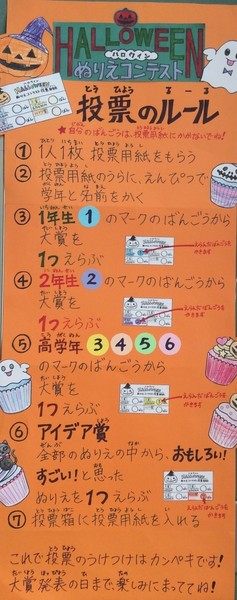 HALLOWEEN
ハロウィン
ぬりえコンテスト
投票のルール
★自分のばんごうは、投票用紙にかかないでね!
① 1人1枚 投票用紙をもらう
② 投票用紙のうらに、えんぴつで
学年と名前をかく
③ 1年生 1 のマークのばんごうから
大賞を
1つえらぶ
えらんだばんごうを
かきます
④ 2年生 2 のマークのばんごうから
大賞を
1つえらぶ
えらんだばんごうを
かきます
⑤ 高学年 3 4 5 6
のマークのばんごうから
大賞を
1つえらぶ
えらんだばんごうを
かきます
⑥ アイデア賞
全部のぬりえの中から、おもしろい!
すごい!と思った
ぬりえを1つえらぶ
⑦ 投票箱に投票用紙を入れる
これで投票のうけつけはカンペキでる!
大賞発表の日まで、楽しみにまっててね!